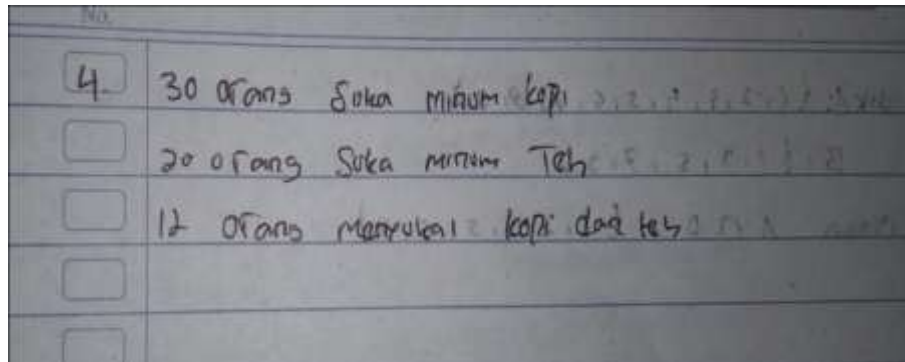 No.
4. 30 orang suka minum kopi
20 orang suka minum Teh
12 orang menyukai kopi dan teh